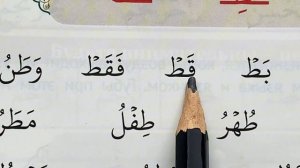 بَطْ قَطْ فَقَطْ وَطَنُ
طُهْرُ طِفْلُ مَطَرُ